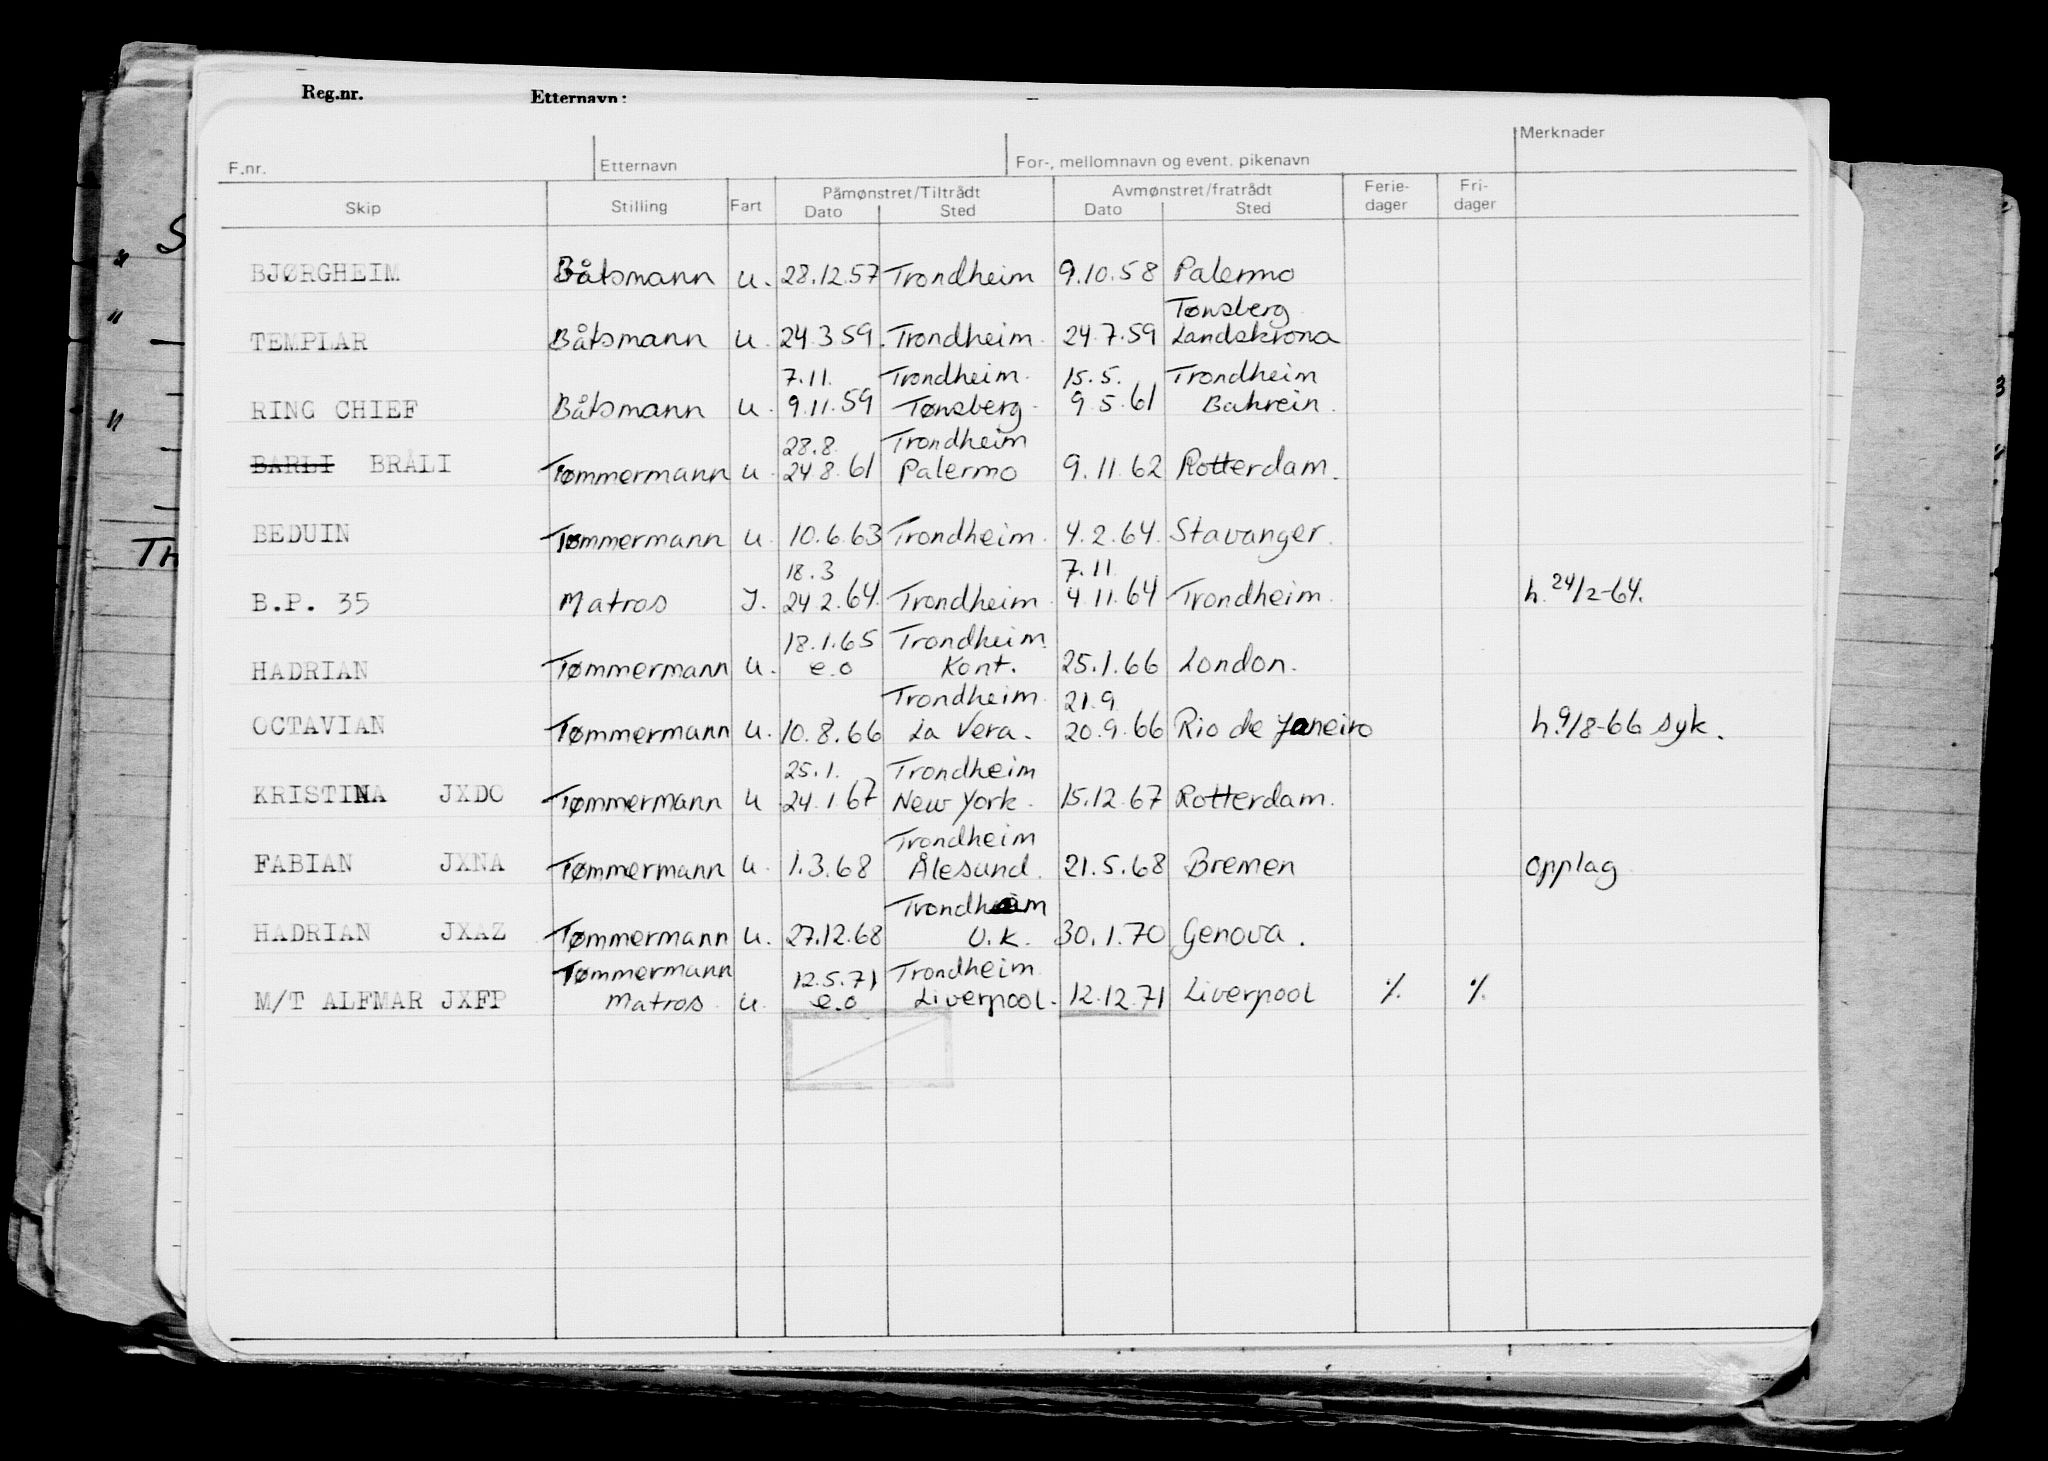 Reg.nr. Etternavn:
Merknader
F.nr. Etternavn For-, mellomnavn og event. pikenavn
Påmønstret/Tiltrådt Avmønstret/fratrådt Ferie- Fri-
Skip Stilling Fart Dato Sted Dato Sted dager dager
BJØRGHEIM Båtsmann u. 28.12.57 Trondheim 9.10.58 Palermo
Tønsberg
TEMPLAR Båtsmann u. 24.3.59. Trondheim. 24.7.59 Landskrona
7.11. Trondheim. 15.5. Trondheim
RING CHIEF Båtsmann u. 9.11.59 Tønsberg. 9.5.61 Bahrein.
28.8. Trondheim
BARLI BRÅLI Tømmermann u. 24.8.61 Palermo 9.11.62 Rotterdam.
BEDUIN Tømmermann u. 10.6.63 Trondheim. 4.2.64. Stavanger.
18.3 7.11.
B.P. 35 Matros J. 24.2.64. Trondheim. 4.11.64 Trondheim. h. 24/2-64.
18.1.65 Trondheim.
HADRIAN Tømmermann u. e.o Kont. 25.1.66 London.
Trondheim. 21.9.
OCTAVIAN Tømmermann u. 10.8.66 La Vera. 20.9.66 Rio de Janeiro h.9/8-66 syk.
25.1. Trondheim
KRISTINA JXDO Tømmermann u 24.1.67 New York. 15.12.67 Rotterdam.
Trondheim
FABIAN JXNA Tømmermann u. 1.3.68 Ålesund. 21.5.68 Bremen Opplag
Trondheim
HADRIAN JXAZ Tømmermann u. 27.12.68 U.K. 30.1.70 Genova.
Tømmermann 12.5.71 Trondheim.
M/T ALFMAR JXFP Matros. u. e.o Liverpool. 12.12.71 Liverpool % %